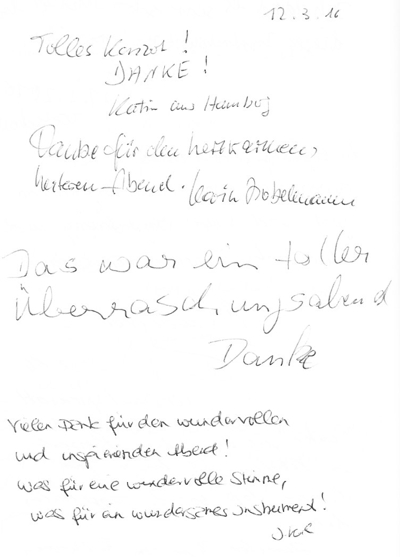 12.3.16
Tolles Konzert!
DANKE!
Katrin aus Hamburg
Danke für den herzwarmen,
Abend. Karin
Das war ein toller
Überraschungsabend
Danke
Vielen Dank für den wundervollen
und inspirierenden Abend!
Was für eine wundervolle Stimme,
was für ein wunderschönes Instrument!